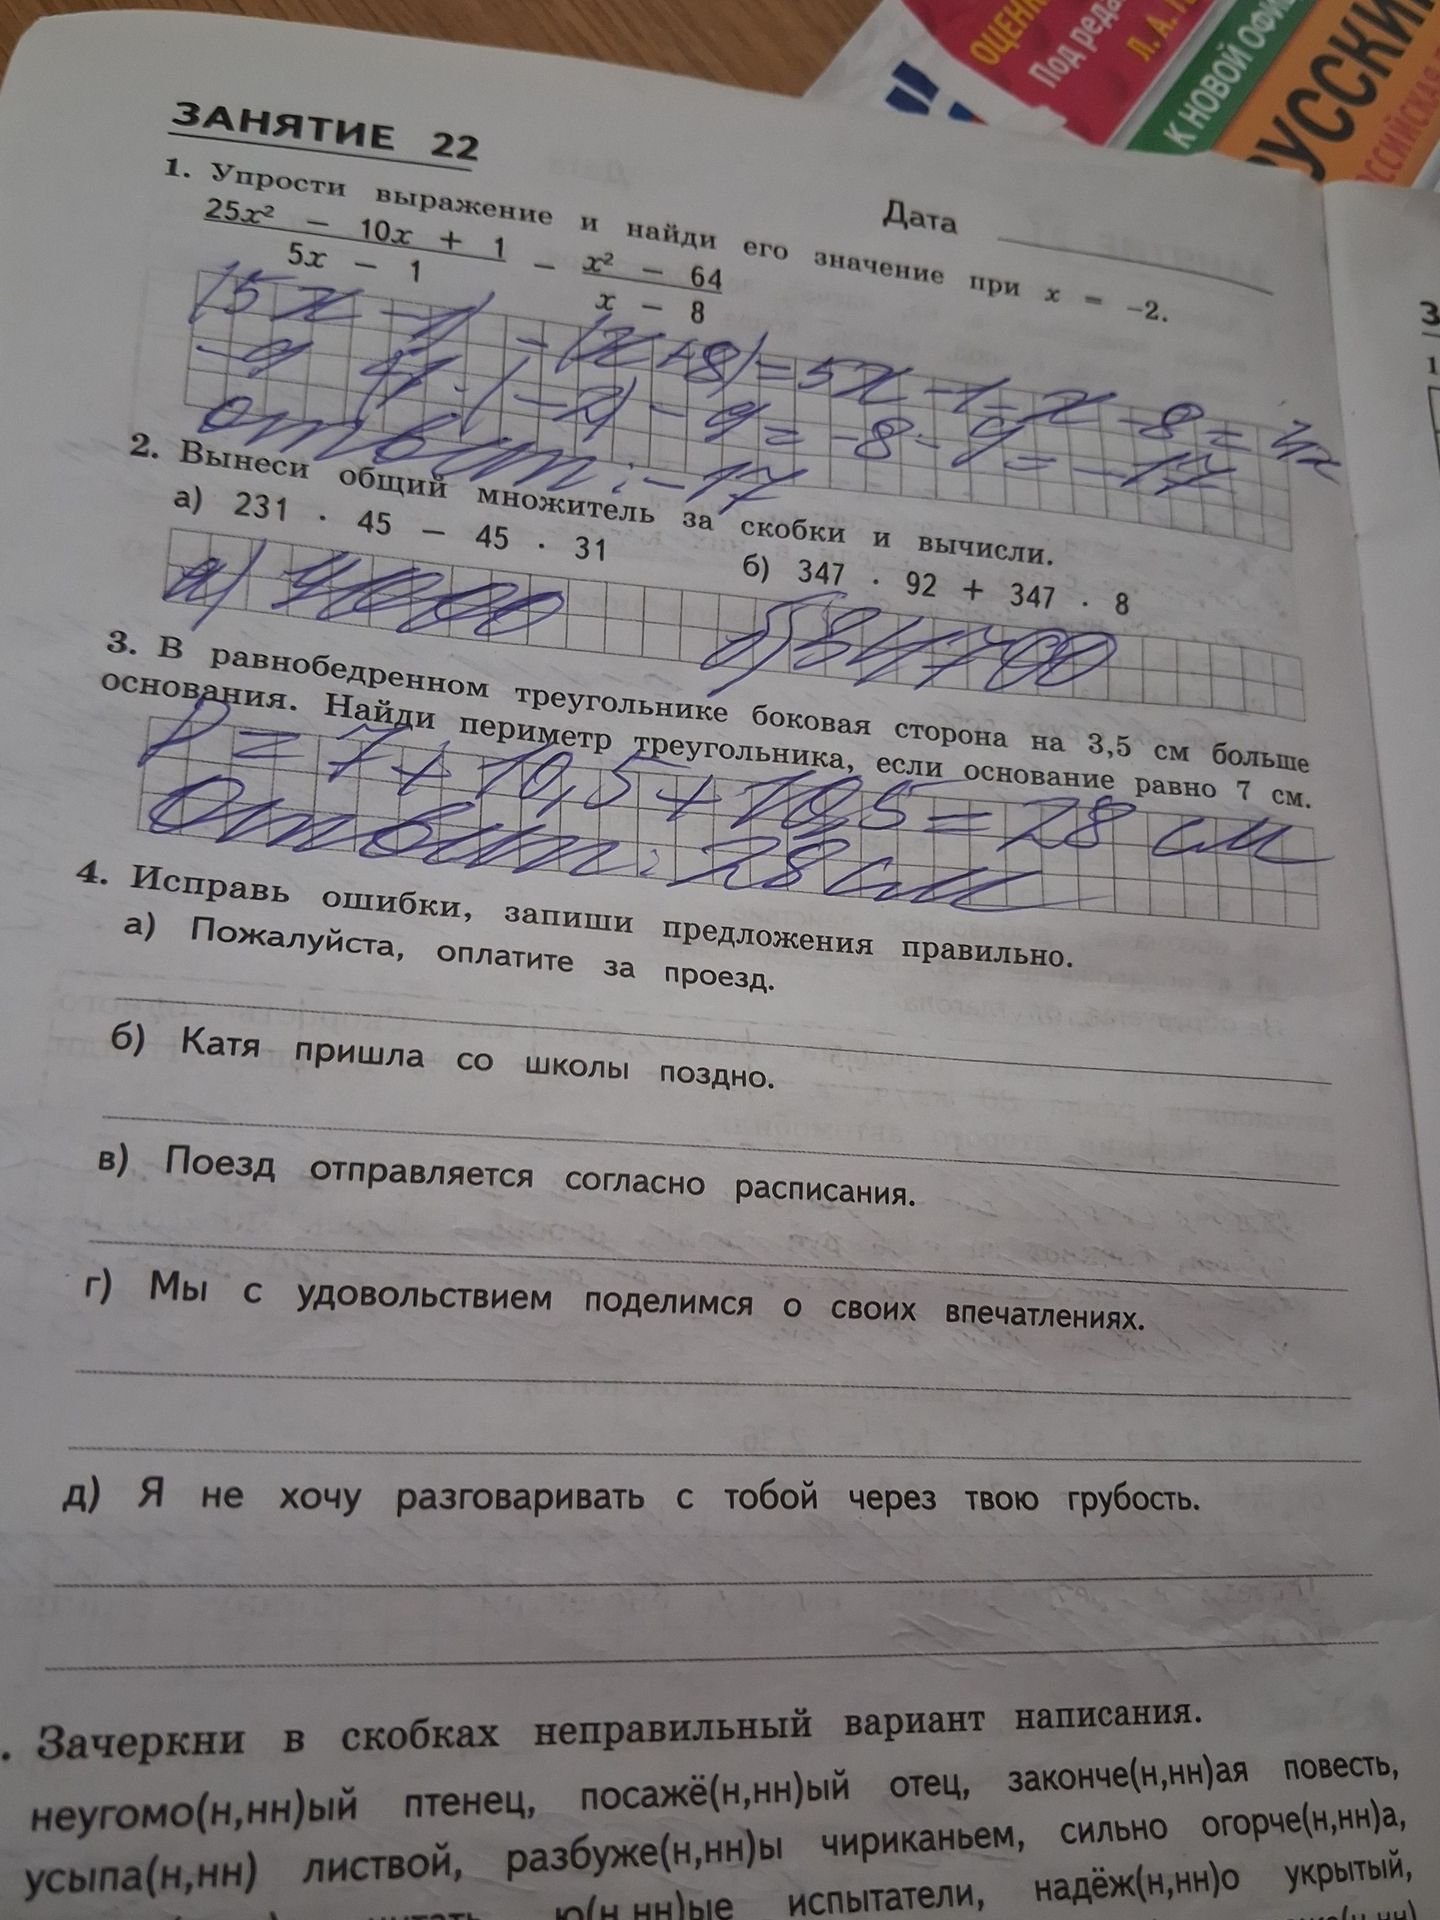 ОЦЕНК
Под реда
Л. А.
К НОВОЙ ОФИЦ
РУССКИ
ССИЙСКАЯ
ЗАНЯТИЕ 22
Дата
1. Упрости выражение и найди его значение при x = -2.
25x² - 10x + 1 / 5x - 1 - x² - 64 / x - 8
(5x - 1) - (x + 8) = 5x - 1 - x - 8 = 4x
- 9 4 · (-2) - 9 = -8 - 9 = -17
ответ: -17
2. Вынеси общий множитель за скобки и вычисли.
а) 231 · 45 - 45 · 31 б) 347 · 92 + 347 · 8
а) 9000 б) 34700
3. В равнобедренном треугольнике боковая сторона на 3,5 см больше
основания. Найди периметр треугольника, если основание равно 7 см.
P = 7 + 10,5 + 10,5 = 28 см
Ответ: 28 см
4. Исправь ошибки, запиши предложения правильно.
а) Пожалуйста, оплатите за проезд.
б) Катя пришла со школы поздно.
в) Поезд отправляется согласно расписания.
г) Мы с удовольствием поделимся о своих впечатлениях.
д) Я не хочу разговаривать с тобой через твою грубость.
. Зачеркни в скобках неправильный вариант написания.
неугомо(н,нн)ый птенец, посажё(н,нн)ый отец, законче(н,нн)ая повесть,
усыпа(н,нн) листвой, разбуже(н,нн)ы чириканьем, сильно огорче(н,нн)а,
ю(н,нн)ые испытатели, надёж(н,нн)о укрытый,